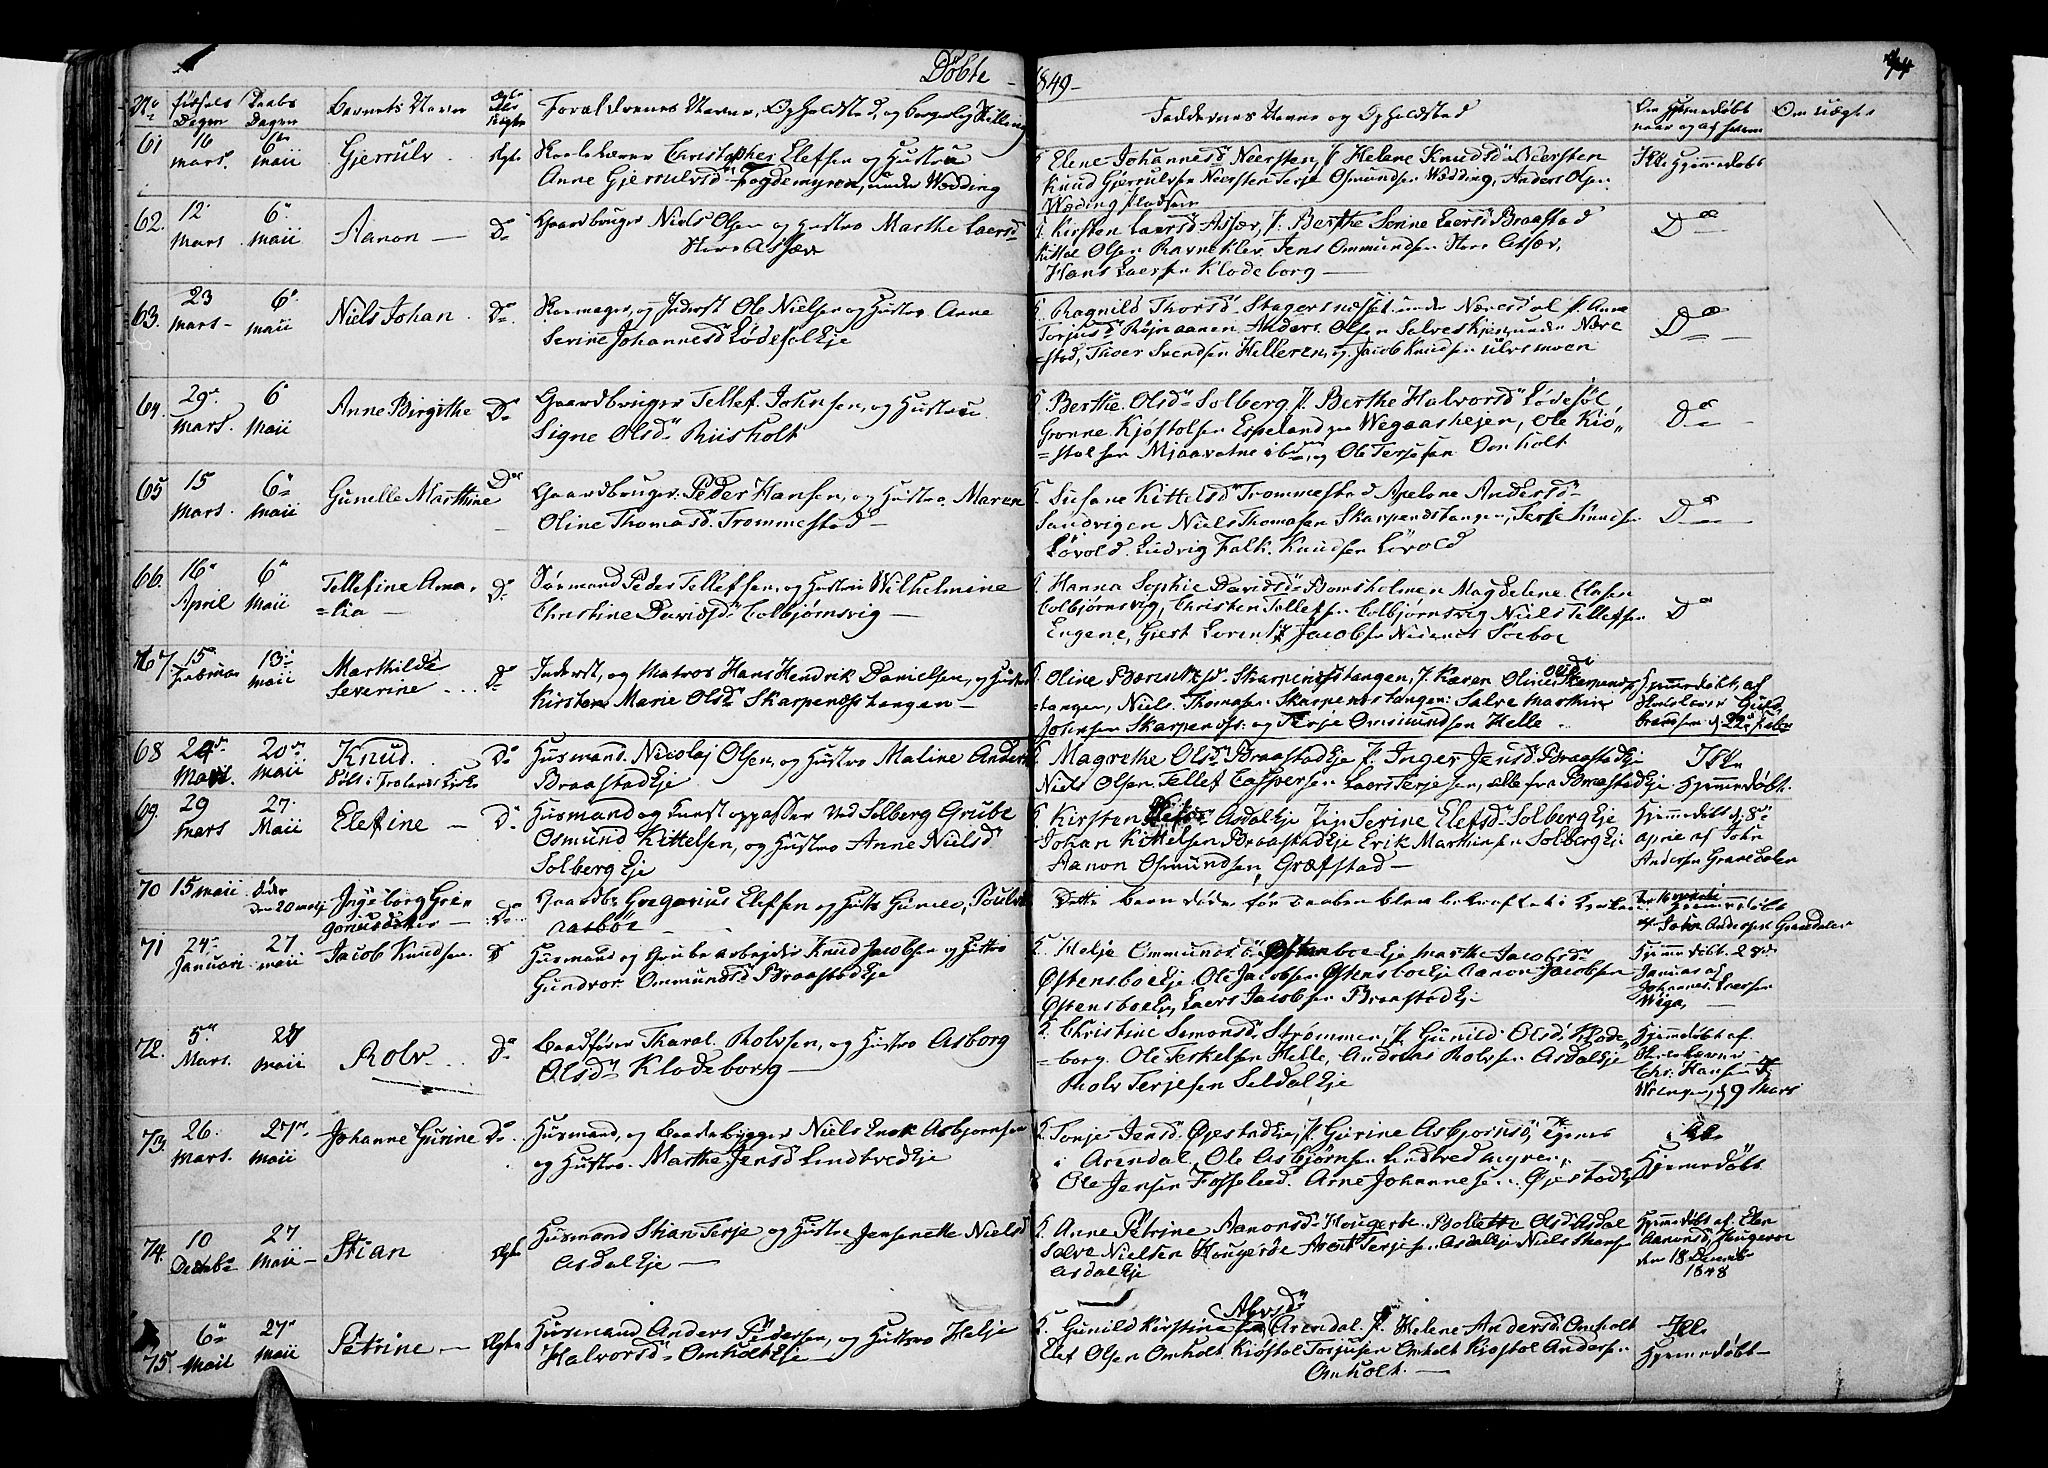 Døbte
1849
No
Fødsels Dagen
Daabs Dagen
Barnets Navn
Forældrenes Navne, Opholdsted, og borgerlig Stilling
Faddernes Navne og Opholdsted
Om Hjemmedøbt naar og af hvem
Om uægte
61
16 mars.
6te maii
Gjerrulv
Ægte
Skolelærer Christopher Elefsen og Hustru
Anne Gjerrulvsd. Fogdemyren, under Wedding
Elene Johannesd Neersten, J. Helene Knudsd Neersten
Knud Gjerrulvsen Neersten Terje Osmundsen Wedding, Anders Olsen
Wedding pladsen
Ikke Hjemmedøbt
62.
12 Mars
6te Maii
Aanon
Do
Gaardbruger Niels Olsen og Hustro Marthe Laersd
Store Assev
K. Kirsten Laersd Assev, J. Berthe Serine Laersd Braastad
Kittel Olsen Ravneklev Jens Ommundsen Store Assev,
Hans Laersen Klodeborg
Do
63.
23 Mars
6te maii
Niels Johan
Do
Skomager, og Inderst Ole Nielsen og Hustro Anne
Serine Johannesd Lødesøl Eje
K. Ragnild Thorsd Stagersnesset under Næresdal J. Anna
Torjusd Røjnaanen Anders Olsen Salveskjen under Nære
=stad, Thoer Svendsen Helleren, og Jacob Knudsen Ulvsmoen
Do
64.
29 Mars.
6 Maii
Anne Birgithe
Do
Gaardbruger Tellef Johnsen, og Hustrue
Signe Olsd. Riisholt
K. Berthe Olsd Solberg J. Berthe Halvorsd Lødesøl
Gronne Kjøstolsen Espeland paa Wegaashejen, Ole Kiø
=stolsen Mjaavatne og Ole Terjesen Omholt
Do
65
15 Mars.
6te Maii
Gunelle Marthine
Do
Gaardbruger Peder Hansen, og Hustro Maren
Oline Thomasd. Trommestad
K. Susane Kittelsd Trommestad Apelone Andersd
Sandvigen Niels Thomasen Skarpenæstangen, Terje Knudsen
Løvold. Ludvig Falk Knudsen Løvold
Do
66.
16 April
6te Maii
Tellefine Ama=
=lia
Do
Sømand Peder Tellefsen, og Hustro Wilhelmine
Christine Davidsd Colbjørnsvig
K. Hanna Sophie Davidsd Bomsholmen Magdelene Clasen
Colbjørnsvig, Christen Tellefsen Colbjørnsvig Niels Tellefsen
Eugene, Giert Lorentz Jacobsen Nedenes Soeboe
Do
67.
15 Februar
13 maii
Mathilde
Severine
Do
Inderst, og Matros Hans Hendrik Danielsen, og Hustro
Kirsten Marie Olsd Skarpenæstangen
K. Oline Bærentsd. Skarpenæstangen, J. Karen Oline Olsd Skarpenæs
tangen, Niels Thomasen Skarpenæstangen. Salve Marthin
Johnsen Skarpenæs. og Terje Omsmundsen Helle
Hjemmedøbt af
Skolelærer
68
24 Mars.
20de maii
Knud.
Døbt i Frolands Kirke
Do
Husmand Nicolaj Olsen, og Hustro Maline Andersd
Braastad Eje
K. Magrethe Olsd Braastad Eje J. Inger Jensd Braastad Eje
Niels Olsen Tellef Caspersen Laers Terjesen, alle fra Braastad Eje
Ikke
Hjemmedøbt.
69.
29 Mars
27 Maii
Elefine
Do
Husmand og Kunstoppasser ved Solberg Grube
Osmund Kittelsen, og Hustro Anne Nielsd
Solberg Eje
K. Kirsten Elefsd Asdal Eje Serine Elefsd Solberg Eje
Johan Kittelsen Braastad Eje Erik Marthinsen Solberg Eje
Aanon Osmundsen Græfstad
Hjemmedøbt d. 8de
April af John
Andersen Gravedalen
70
15 maii
døde
den 20 maij
Ingeborg Gre=
goriusdatter
Do
Gaardbr Gregorius Elefsen og Hustr Gunild Poulsd
Rasbøe
Dette barn døde før Daaben blev bekræftet i Kirken
Hjemmedøbt
af John Andersen Gravedalen
71
24 Januari
27 maii
Jacob Knudsen
Do
Husmand og Grube arbejder Knud Jacobsen og Hustro
Gundvor Ommundsd Braastad Eje
K. Helje Ommundsd Østensboe Eje Marthe Jacobsd
Østensboe Eje. Ole Jacobsen Østensboe Eje Aanon Jacobsen
Østensboe Eje, Laers Jacobsen Braastad Eje
Hjemmedøbt 28de
Januar af
Johannes Laersen
Wiga
72.
5te Mars.
27 maii
Rolv
Do
Baadfører Tharal Rolvsen, og Hustro Asborg
Olsd Klodeborg
K. Christine Semonsd Strømmen, J. Gunild Olsd Klode
=borg. Ole Terkelsen Helle, Andreas Rolvsen Asdal Eje
Rolv Terjesen Seldal Eje
Hjemmedøbt af
Skolelærer
Chr. Hansen
d 9 Mars
73.
26. Mars.
27 Maii
Johanne Gurine
Do
Husmand, og Baadebygger Niels Enok Asbjørnsen
og Hustro. Marthe Jensd Lindtved Eje
K. Tonje Jensd. Øjestad Eje, J. Gurine Asbjørnsd, Tjenes
i Arendal, Ole Asbjørnsen Lindtved myren
Ole Jensen Fosselied. Arne Johannesen Øjestad Eje
Ikke
Hjemmedøbt
74.
10 Decbr
27 Maii
Stian
Ægte
Husmand Stian Terje og Hustro Jensenette Nielsd
Asdal Eje
K. Anne Petrine Aanonsd Hougerte. Bollette Olsd Asdal
Salve Nielsen Hougerøe Arent Terjesen Asdal Eje Niels Stians
Asdal Eje
Hjemmedøbt af Elen
Aanonsd, Hougeroe
den 18 Decemb
1848
75.
6te Maii
27 Maii
Petrine
Ægte
Husmand Anders Pedersen, og Hustro Helje
Halvorsd Omholt Eje
K. Gunild Kirstine Arendal. J. Helene Andersd Omholt
Elef Olsen Omholt. Kiøstol Torjusen Omholt Kjøstol Andersen
Omholt.
Ikke
Hjemmedøbt